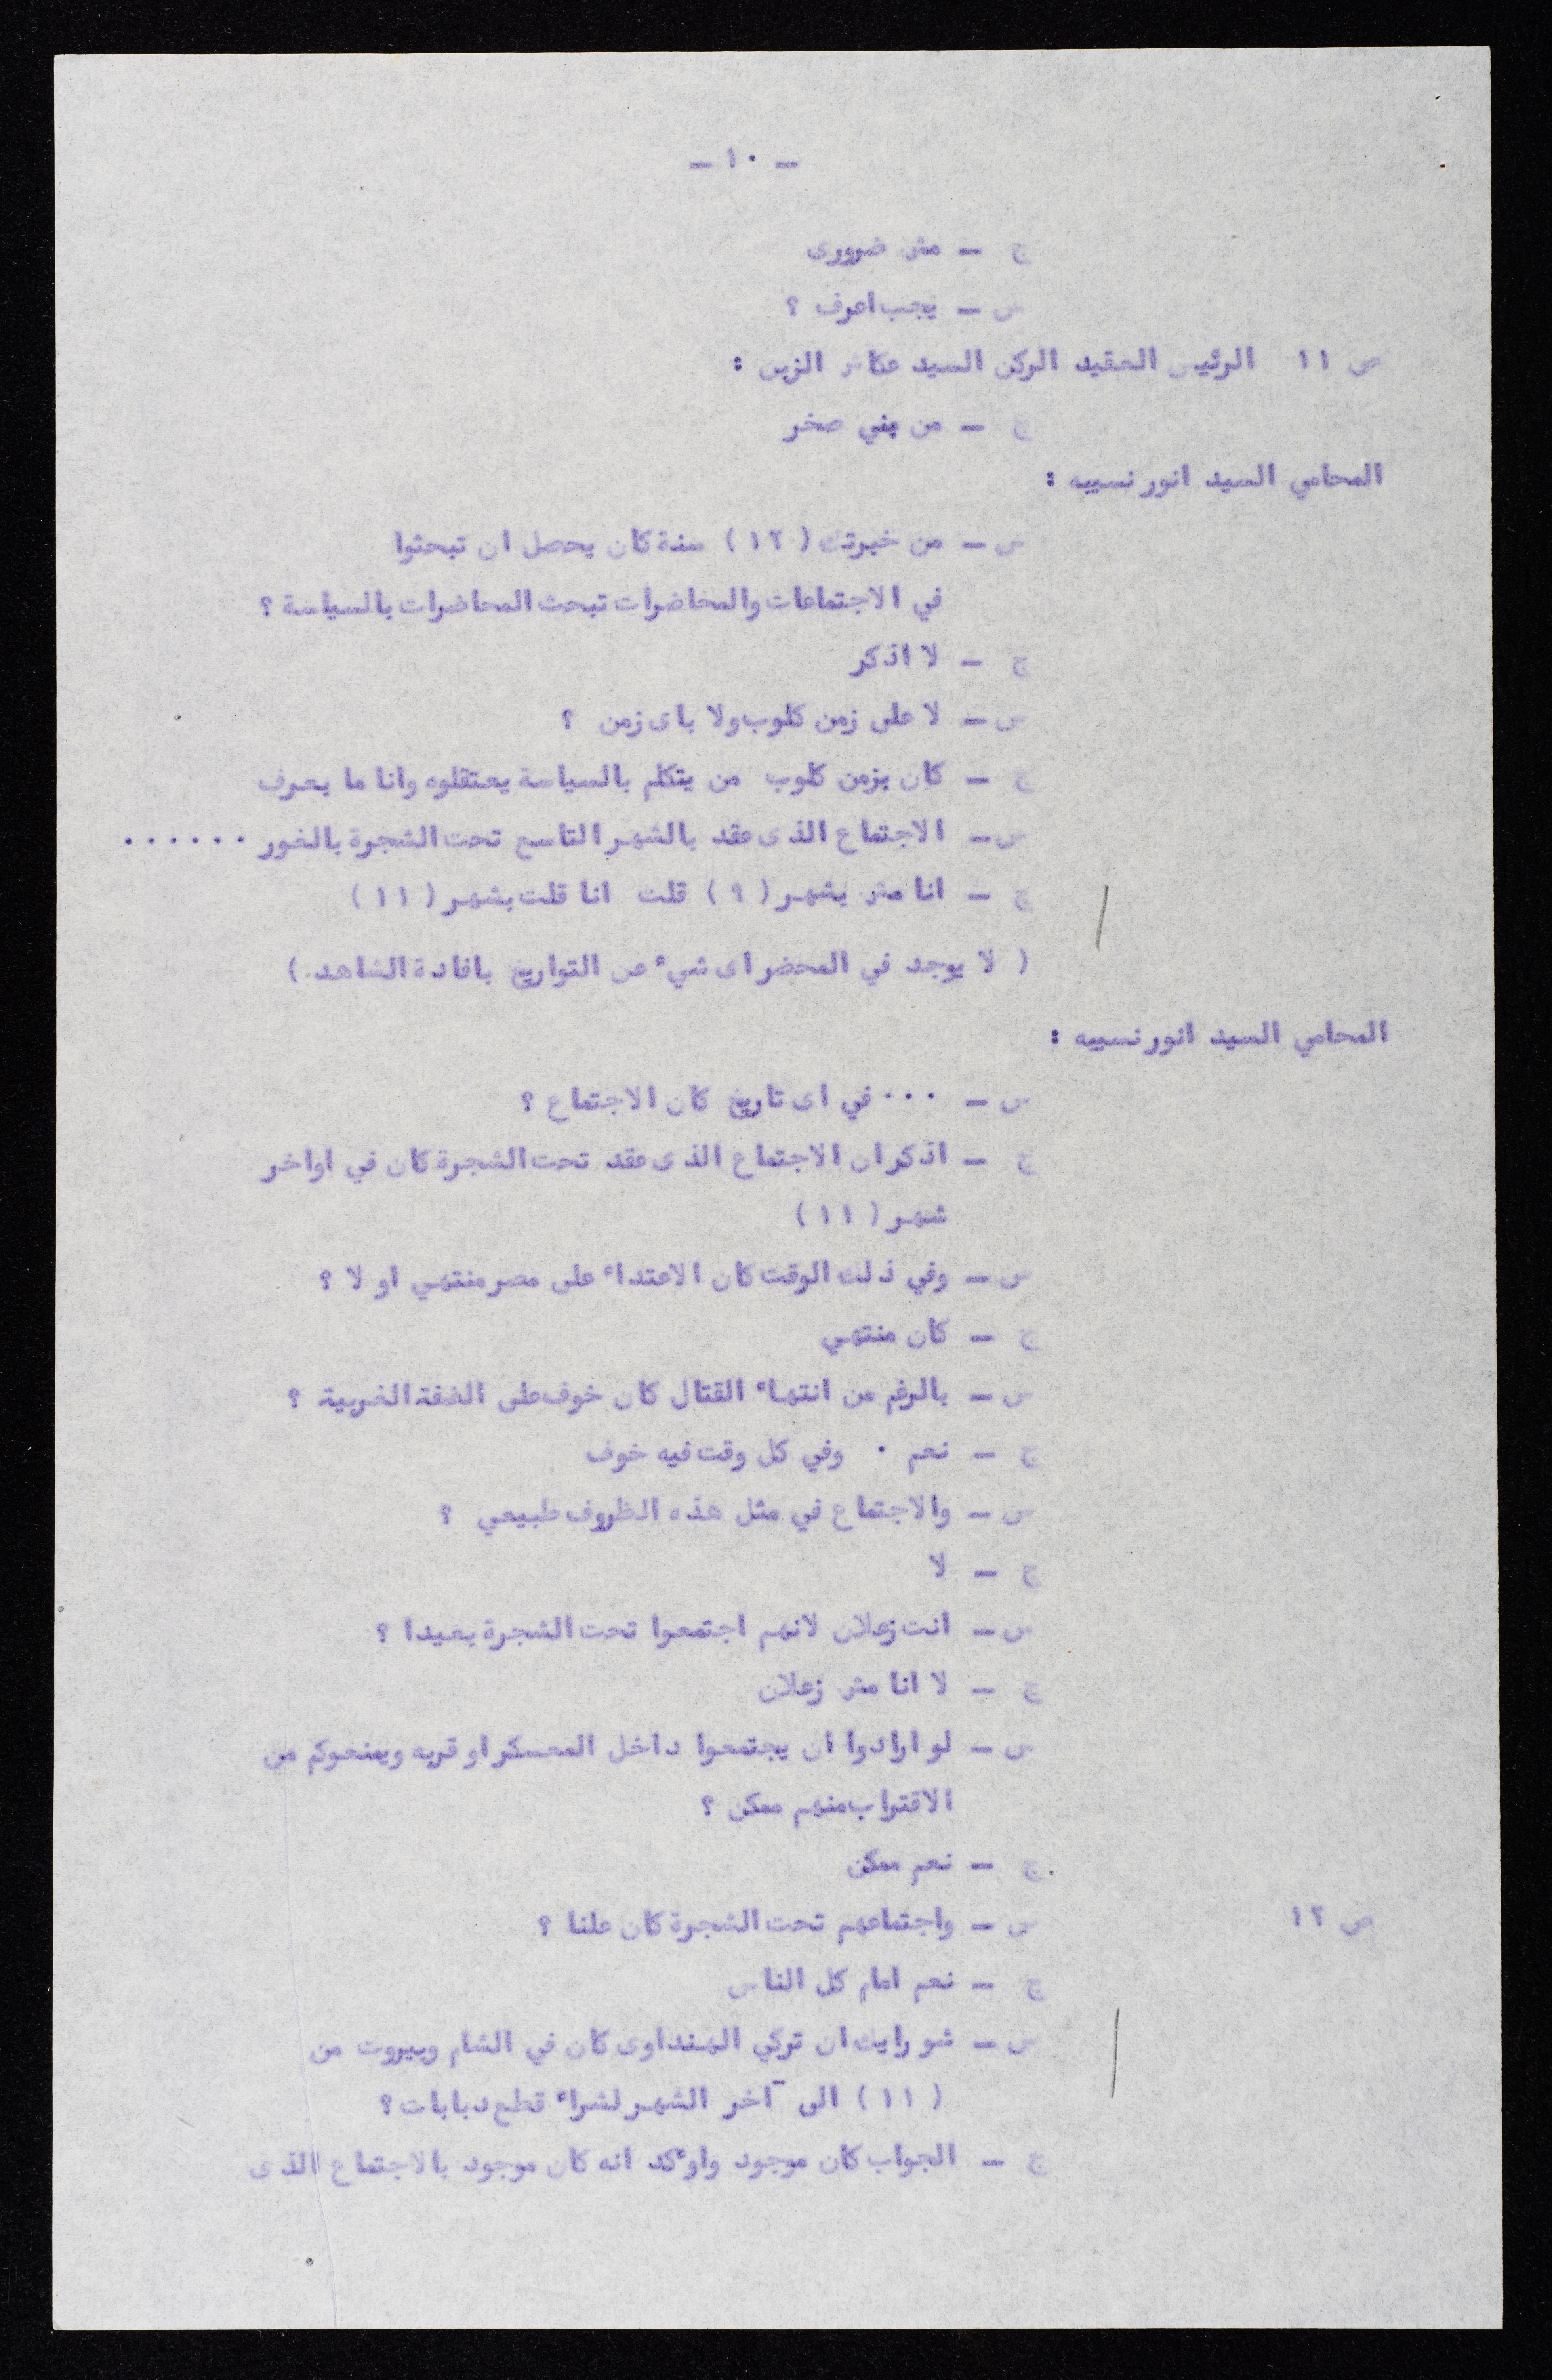 - ١٠ -
ج - مش ضرورى
س - يجب اعرف ؟
ص ١١ الرئيس العقيد الركن السيد عكاش الزبن :
ج - من بني صخر
المحامي السيد انور نسيبه :
س - من خبرتك (١٢) سنة كان يحصل ان تبحثوا
في الاجتماعات والمحاضرات تبحث المحاضرات بالسياسة ؟
ج - لا اذكر
س - لا على زمن كلوب ولا باى زمن ؟
ج - كان بزمن كلوب من يتكلم بالسياسة يعتقلوه وانا ما بعرف
س - الاجتماع الذى عقد بالشهر التاسع تحت الشجرة بالغور ......
ج - انا مش بشهر (٩) قلت انا قلت بشهر (١١)
( لا يوجد في المحضر اى شيء عن التواريخ بافادة الشاهد.)
المحامي السيد انور نسيبه :
س - ... في اى تاريخ كان الاجتماع ؟
ج - اذكر ان الاجتماع الذى عقد تحت الشجرة كان في اواخر
شهر (١١)
س - وفي ذلك الوقت كان الاعتداء على مصر منتهي او لا ؟
ج - كان منتهي
س - بالرغم من انتهاء القتال كان خوف على الضفة الغربية ؟
ج - نعم . وفي كل وقت فيه خوف
س - والاجتماع في مثل هذه الظروف طبيعي ؟
ج - لا
س - انت زعلان لانهم اجتمعوا تحت الشجرة بعيدا ؟
ج - لا انا مش زعلان
س - لو ارادوا ان يجتمعوا داخل المعسكر او قربه ويمنعوكم من
الاقتراب منهم ممكن ؟
ج - نعم ممكن
ص ١٢ س - واجتماعهم تحت الشجرة كان علنا ؟
ج - نعم امام كل الناس
س - شو رايك ان تركي الهنداوى كان في الشام وبيروت من
(١١) الى آخر الشهر لشراء قطع دبابات ؟
ج - الجواب كان موجود واوءكد انه كان موجود بالاجتماع الذى